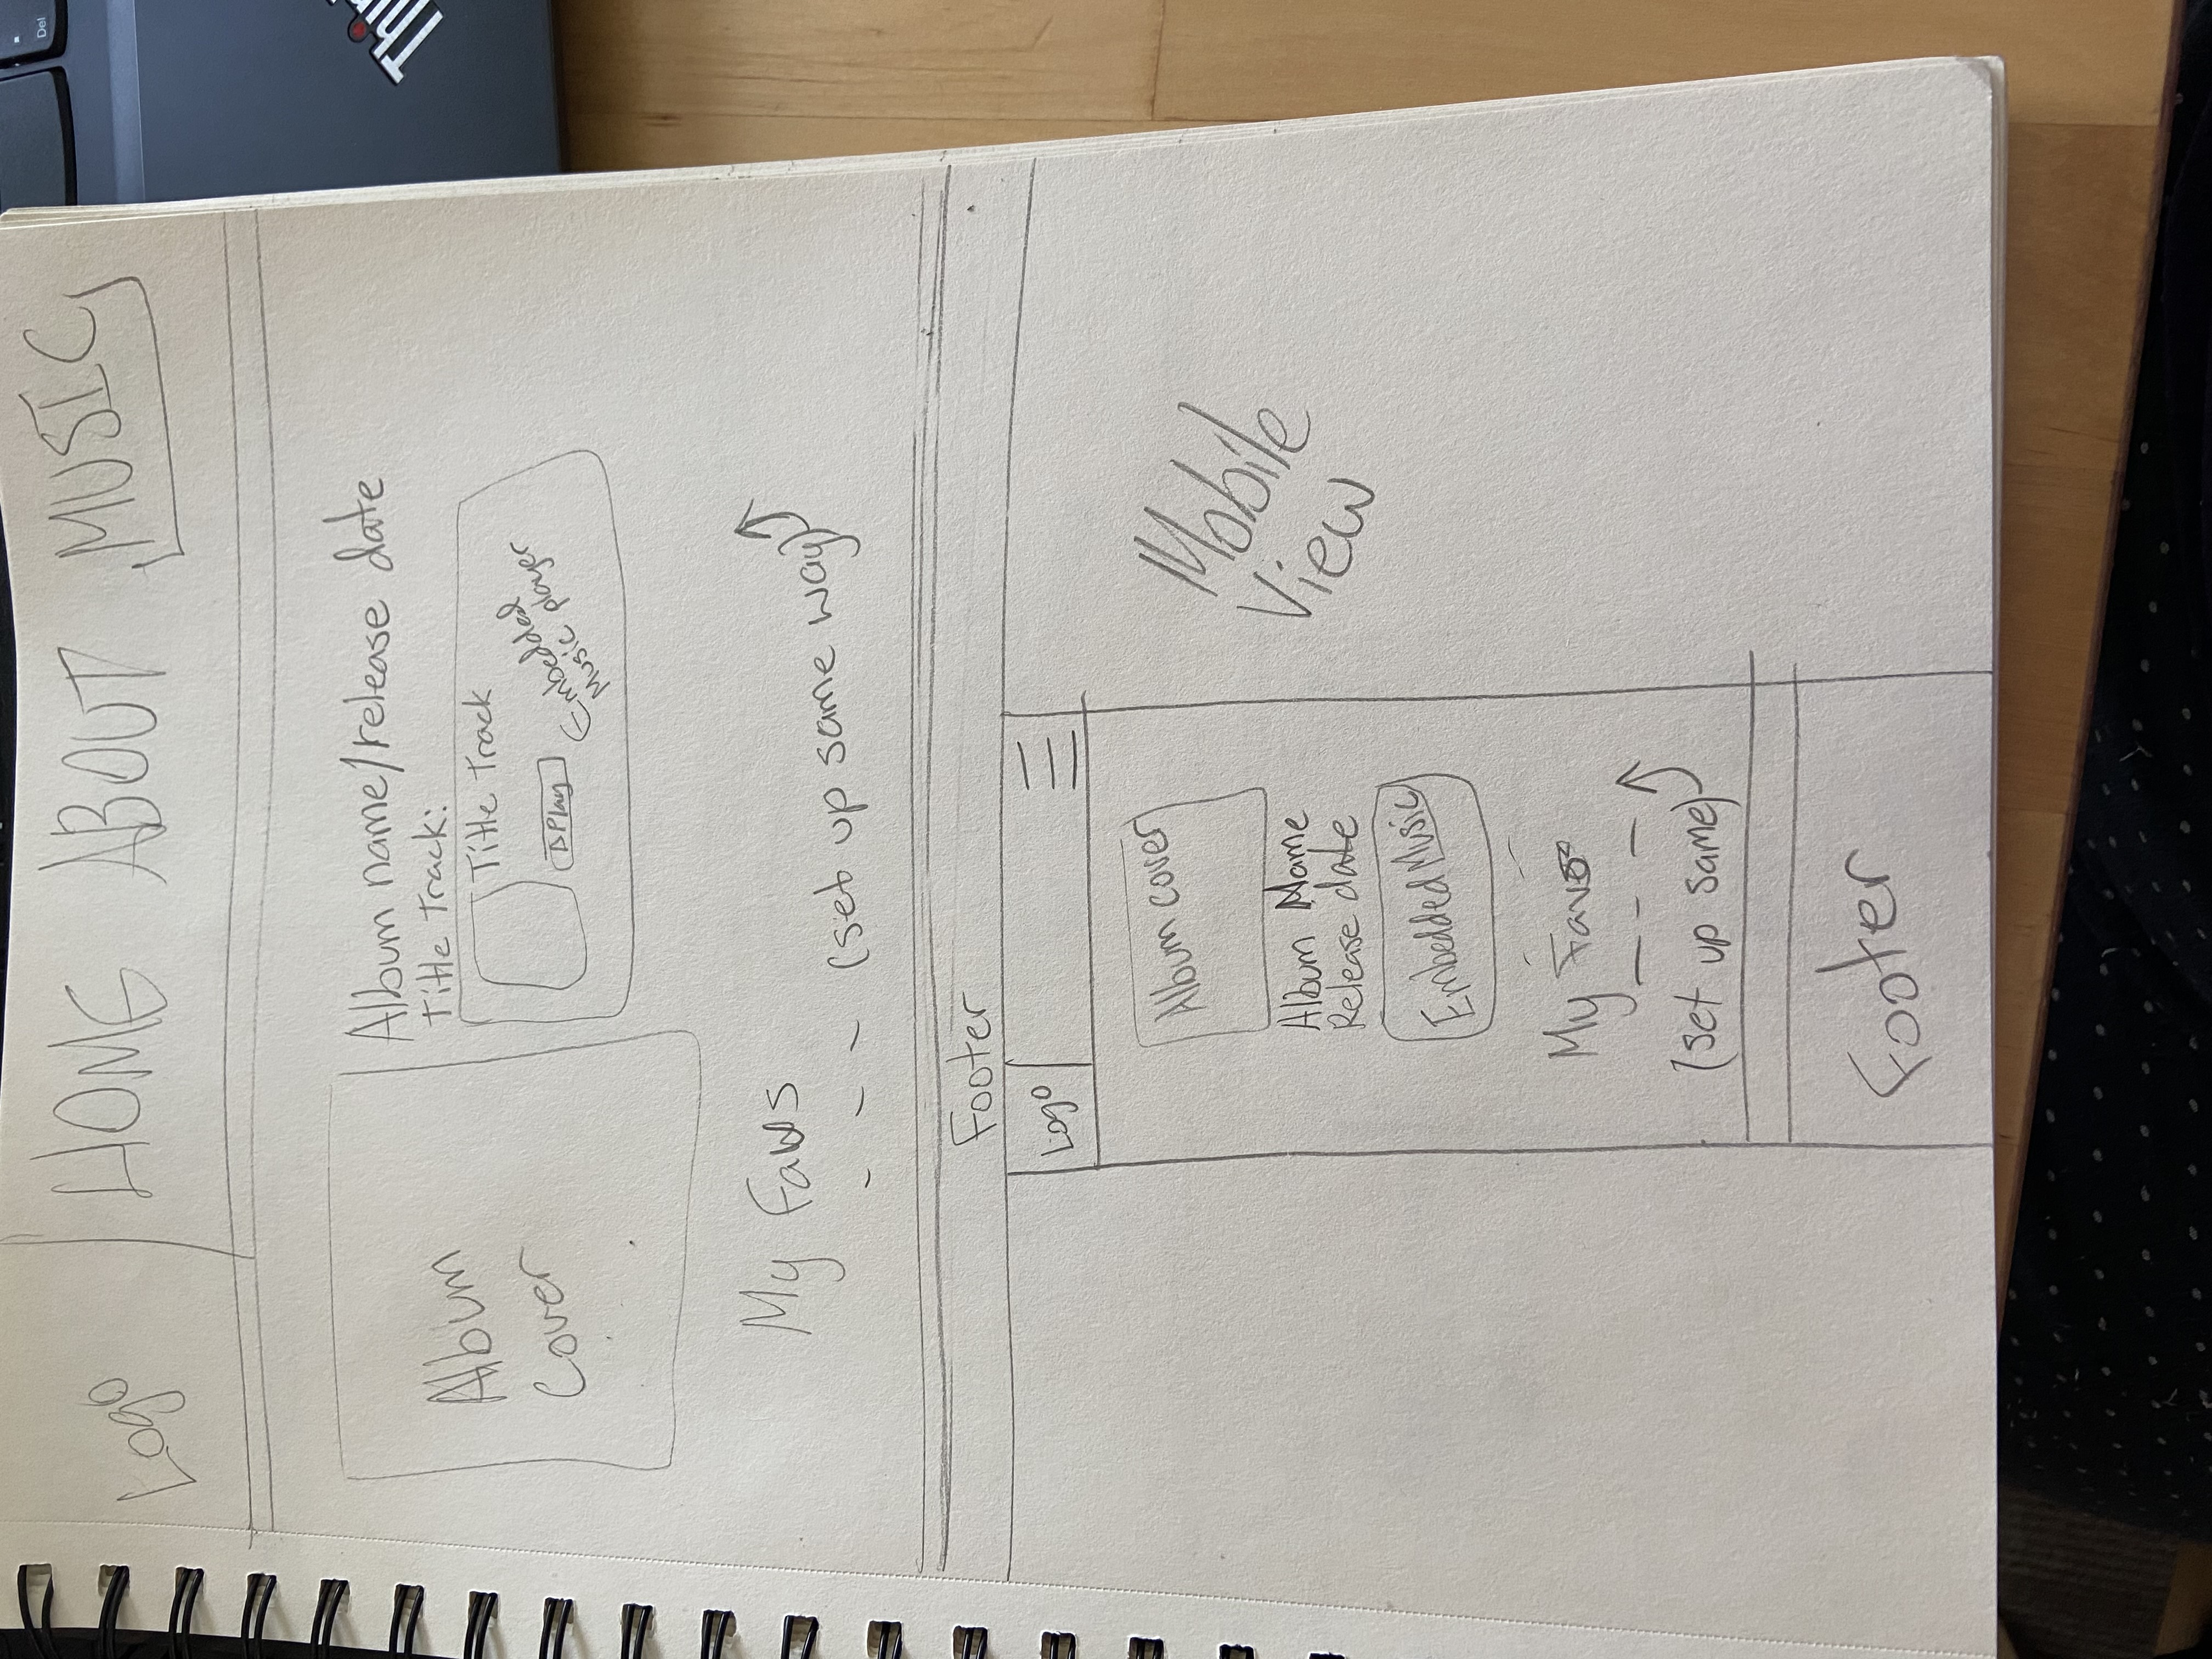 Del
Logo
HOME ABOUT MUSIC
Album name/release date
Title Track:
Album
Cover
Title Track
▷Play
Embedded
Music player
My Favs
- - - (set up same way)
Footer
Logo
Album cover
Album Name
Release date
Embedded Music
My Favs
- - -
(set up same)
Footer
Mobile
View